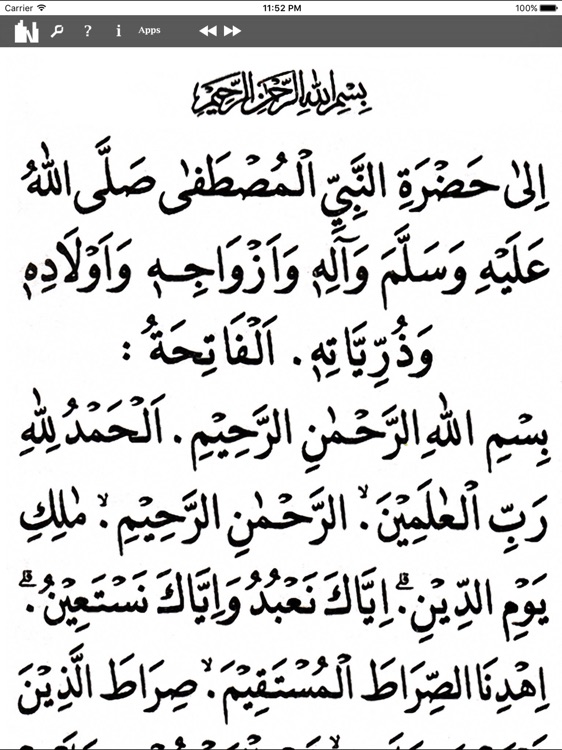 Carrier 11:52 PM 100%
? i Apps
بِسْمِ اللهِ الرَّحْمٰنِ الرَّحِيْمِ
اِلىٰ حَضْرَةِ النَّبِيِّ الْمُصْطَفىٰ صَلَّى اللهُ
عَلَيْهِ وَسَلَّمَ وَآلِهٖ وَاَزْوَاجِهٖ وَاَوْلَادِهٖ
وَذُرِّيَّاتِهٖ . اَلْفَاتِحَةُ :
بِسْمِ اللهِ الرَّحْمٰنِ الرَّحِيْمِ . اَلْحَمْدُ لِلّٰهِ
رَبِّ الْعٰلَمِيْنَۙ . الرَّحْمٰنِ الرَّحِيْمِۙ . مٰلِكِ
يَوْمِ الدِّيْنِۗ . اِيَّاكَ نَعْبُدُ وَاِيَّاكَ نَسْتَعِيْنُۗ .
اِهْدِنَا الصِّرَاطَ الْمُسْتَقِيْمَۙ . صِرَاطَ الَّذِيْنَ